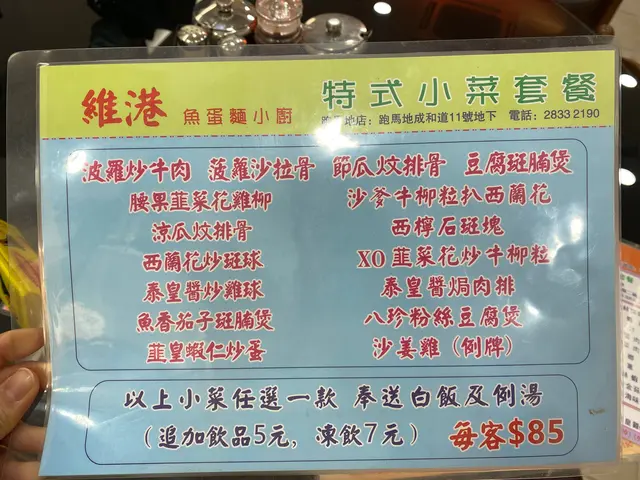 維港 魚蛋麵小廚 特式小菜套餐
跑馬地店：跑馬地成和道11號地下 電話：2833 2190
波羅炒牛肉 菠蘿沙拉骨 節瓜炆排骨 豆腐斑腩煲
腰果韮菜花雞柳 沙爹牛柳粒扒西蘭花
涼瓜炆排骨 西檸石斑塊
西蘭花炒斑球 XO韮菜花炒牛柳粒
泰皇醬炒雞球 泰皇醬焗肉排
魚香茄子斑腩煲 八珍粉絲豆腐煲
韮皇蝦仁炒蛋 沙姜雞（例牌）
以上小菜任選一款 奉送白飯及例湯
（追加飲品5元，凍飲7元） 每客$85